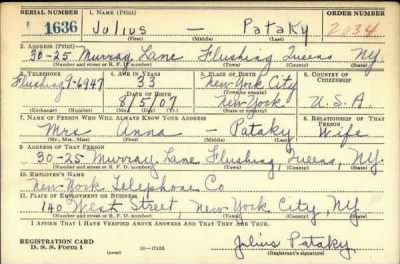 SERIAL NUMBER 1. NAME (Print) ORDER NUMBER
1636 Julius — Pataky 2034
(First) (Middle) (Last)
2. ADDRESS (Print)
30-25 Murray Lane Flushing Queens NY.
(Number and street or R. F. D. number) (Town) (County) (State)
3. TELEPHONE 4. AGE IN YEARS 5. PLACE OF BIRTH 6. COUNTRY OF CITIZENSHIP
Flushing 7-6947 33 New York City
(Town or county)
DATE OF BIRTH
8/5/07 New York U.S.A.
(Exchange) (Number) (Mo.) (Day) (Yr.) (State or country)
7. NAME OF PERSON WHO WILL ALWAYS KNOW YOUR ADDRESS 8. RELATIONSHIP OF THAT PERSON
Mrs Anna — Pataky Wife
(Mr., Mrs., Miss) (First) (Middle) (Last)
9. ADDRESS OF THAT PERSON
30-25 Murray Lane Flushing, Queens, NY.
(Number and street or R. F. D. number) (Town) (County) (State)
10. EMPLOYER'S NAME
New York Telephone Co
11. PLACE OF EMPLOYMENT OR BUSINESS
140 West Street, New York City, NY
(Number and street or R. F. D. number) (Town) (County) (State)
I AFFIRM THAT I HAVE VERIFIED ABOVE ANSWERS AND THAT THEY ARE TRUE.
REGISTRATION CARD
D. S. S. Form 1 (over) 16—17105 Julius Pataky
(Registrant's signature)